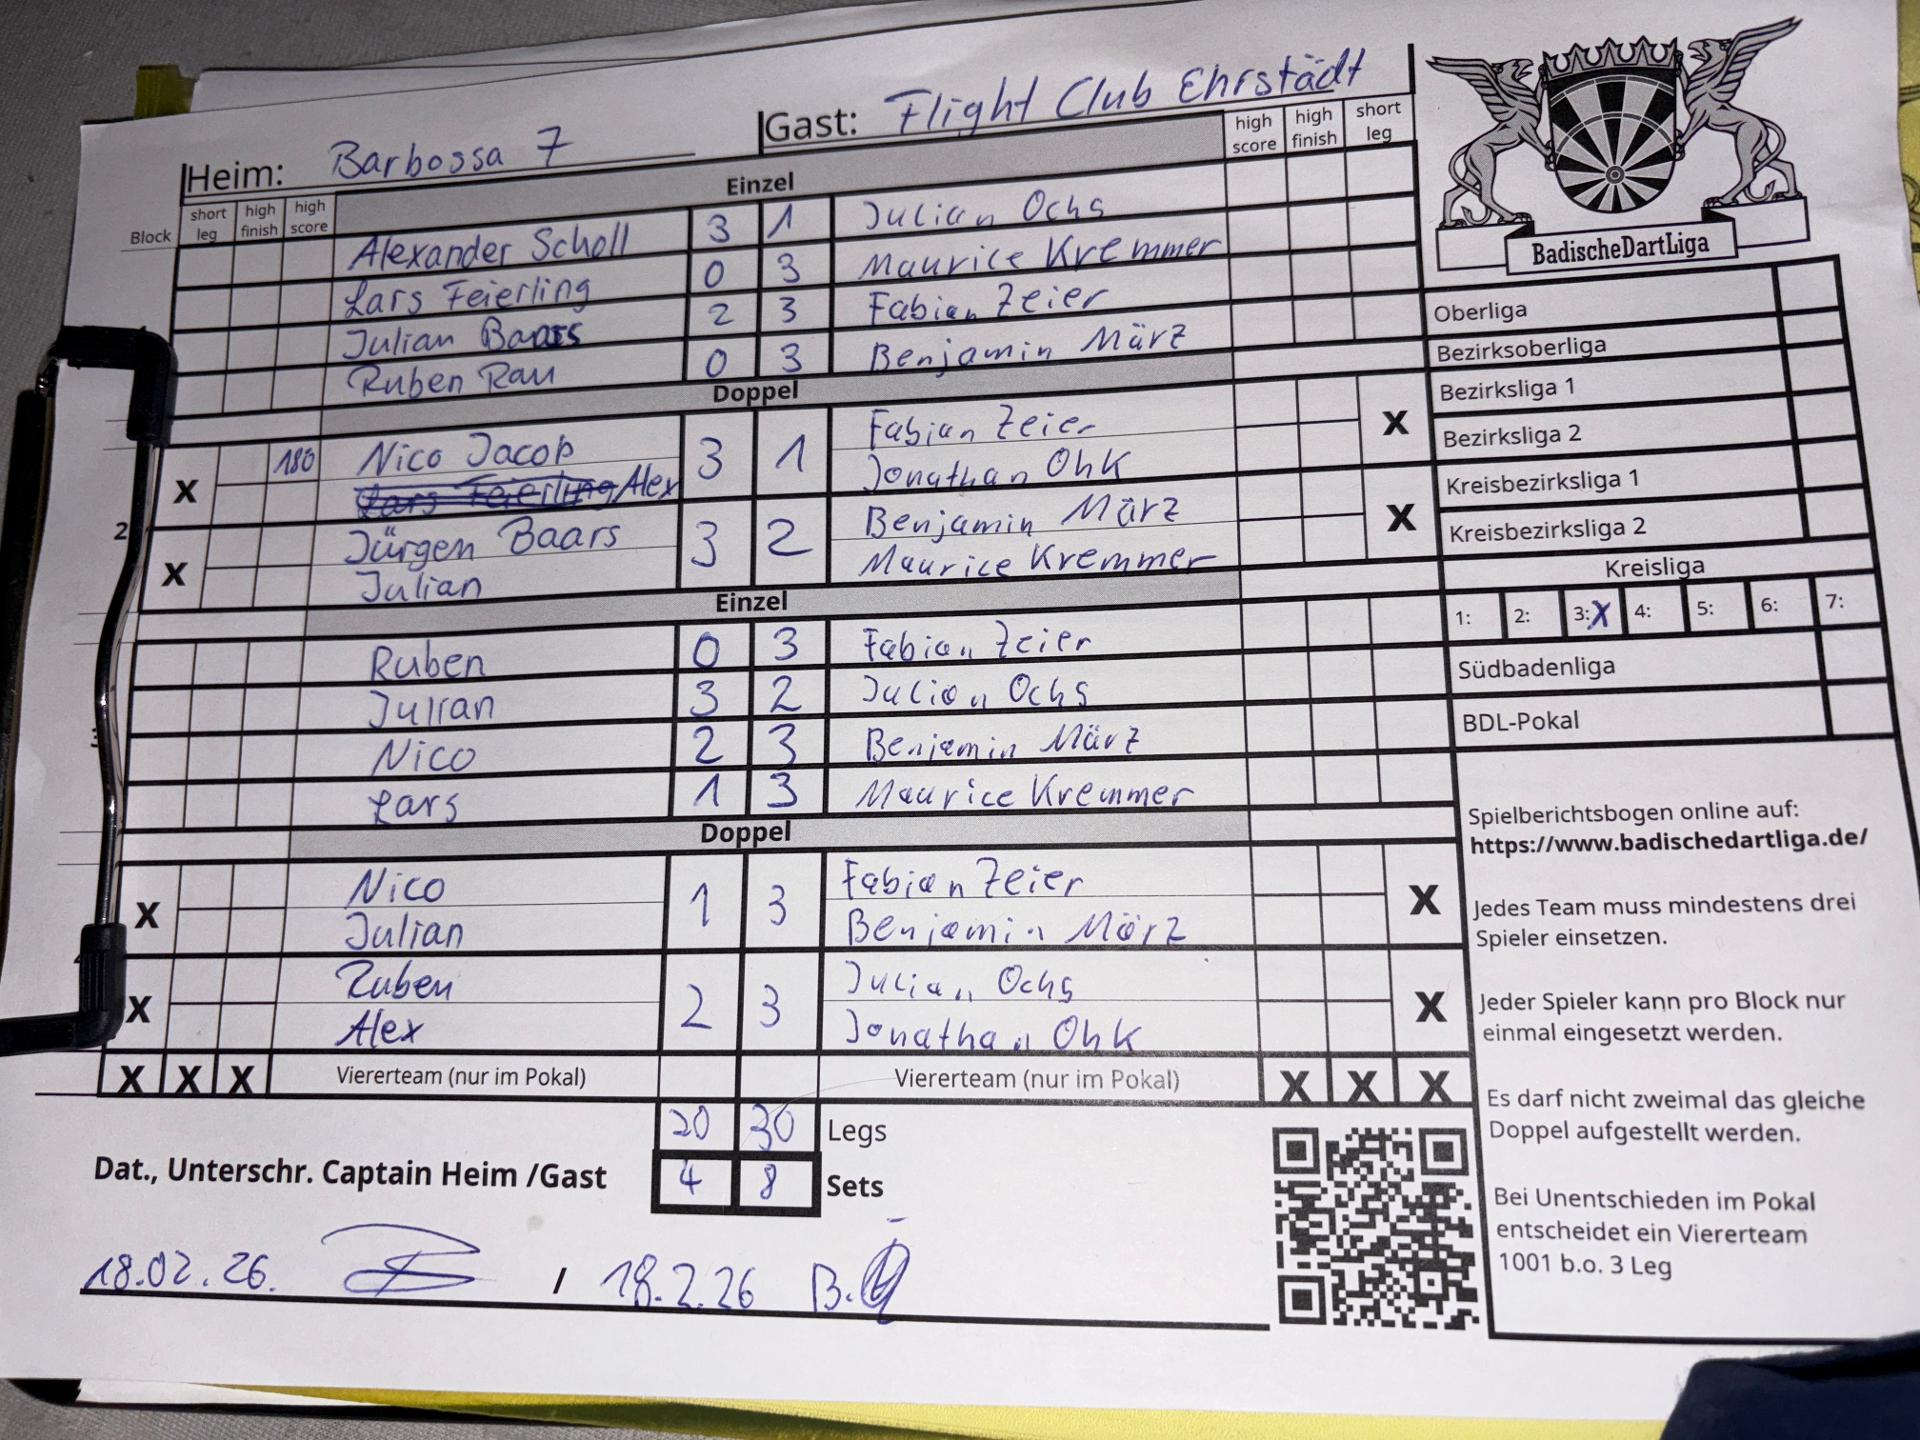 Heim: Barbossa 7
Gast: Flight Club Ehrstädt
Block short leg high finish high score Einzel high score high finish short leg
Alexander Scholl 3 1 Julian Ochs
Lars Feierling 0 3 Maurice Kremmer
Julian Baars 2 3 Fabian Zeier
Ruben Rau 0 3 Benjamin März
Doppel
X 180 Nico Jacob 3 1 Fabian Zeier X
Lars Feierling Alex Jonathan Ohk
2
X Jürgen Baars 3 2 Benjamin März X
Julian Maurice Kremmer
Einzel
Ruben 0 3 Fabian Zeier
Julian 3 2 Julian Ochs
Nico 2 3 Benjamin März
Lars 1 3 Maurice Kremmer
Doppel
X Nico 1 3 Fabian Zeier X
Julian Benjamin März
X Ruben 2 3 Julian Ochs X
Alex Jonathan Ohk
X X X Viererteam (nur im Pokal) Viererteam (nur im Pokal) X X X
20 30 Legs
Dat., Unterschr. Captain Heim /Gast 4 8 Sets
18.02.26. / 18.2.26 B.
BadischeDartLiga
Oberliga
Bezirksoberliga
Bezirksliga 1
Bezirksliga 2
Kreisbezirksliga 1
Kreisbezirksliga 2
Kreisliga
1: 2: 3:X 4: 5: 6: 7:
Südbadenliga
BDL-Pokal
Spielberichtsbogen online auf:
https://www.badischedartliga.de/
Jedes Team muss mindestens drei
Spieler einsetzen.
Jeder Spieler kann pro Block nur
einmal eingesetzt werden.
Es darf nicht zweimal das gleiche
Doppel aufgestellt werden.
Bei Unentschieden im Pokal
entscheidet ein Viererteam
1001 b.o. 3 Leg